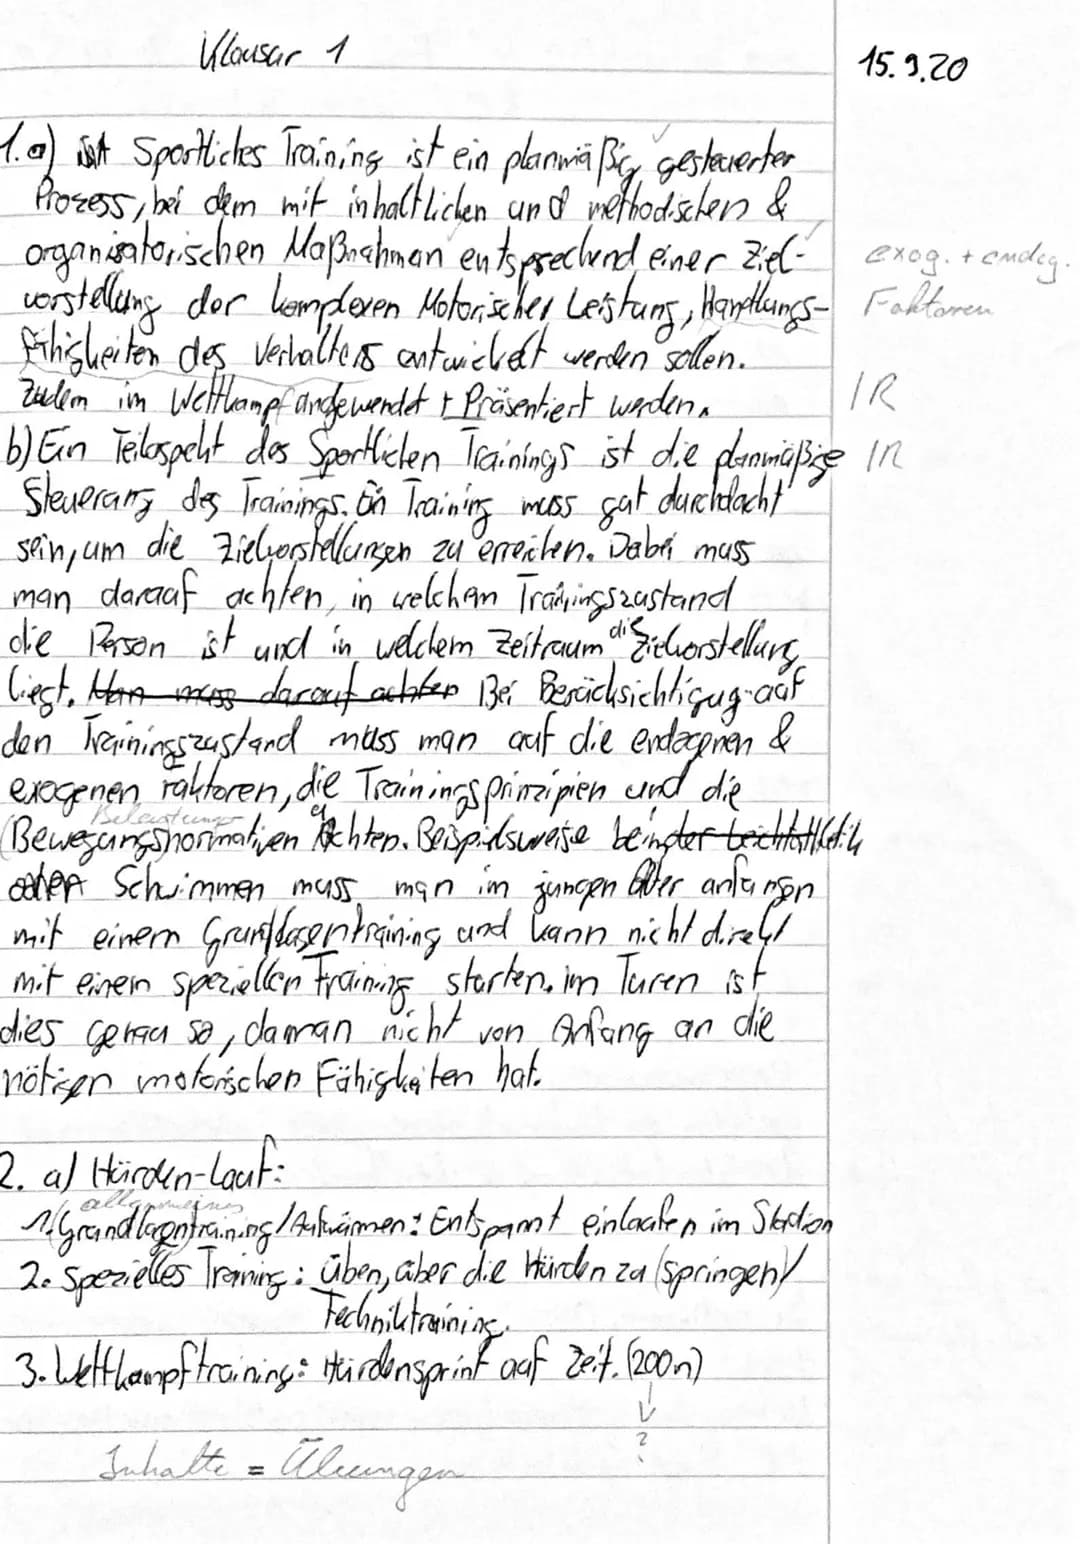 Klausur 1
15.9.20
1. a) Sportliches Training ist ein planmäßig gesteuerter
Prozess, bei dem mit inhaltlichen und methodischen &
organisatorischen Maßnahmen entsprechend einer Ziel-
exog. + endog.
vorstellung der komplexen Motorischer Leistung, Handlungs-
Faktoren
fähigkeiten des Verhaltens entwickelt werden sollen.
Zudem im Wettkampf angewendet + Präsentiert werden.
IR
b) Ein Teilaspekt des Sportlichen Trainings ist die planmäßige
IR
Steuerung des Trainings. Ein Training muss gut durchdacht
sein, um die Zielvorstellungen zu erreichen. Dabei muss
man darauf achten, in welchem Trainingszustand
die Person ist und in welchem Zeitraum die Zielvorstellung
liegt. Man muss darauf achten Bei Berücksichtigug auf
den Trainingszustand muss man auf die endogenen &
exogenen Faktoren, die Trainingsprinzipien und die
Belastungs
(Bewegungsnormativen achten. Beispielsweise beim der Leichtathletik
Schwimmen muss man im jungen Alter anfangen
mit einem Grundlagentraining und kann nicht direkt
mit einem speziellen Training starten. im Turen ist
dies genau so, da man nicht von Anfang an die
nötigen motorischen Fähigkeiten hat.
2. a) Hürden-Lauf:
allgemeines
1. Grundlagentraining/Aufwärmen: Entspannt einlaufen im Stadion
2. Spezielles Training: üben, über die Hürden zu (springen)/
Techniktraining.
3. Wettkampftraining: Hürdensprint auf Zeit. (200m)
?
Inhalte = Übungen